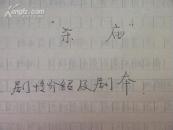 "杀庙"
剧情介绍及剧本